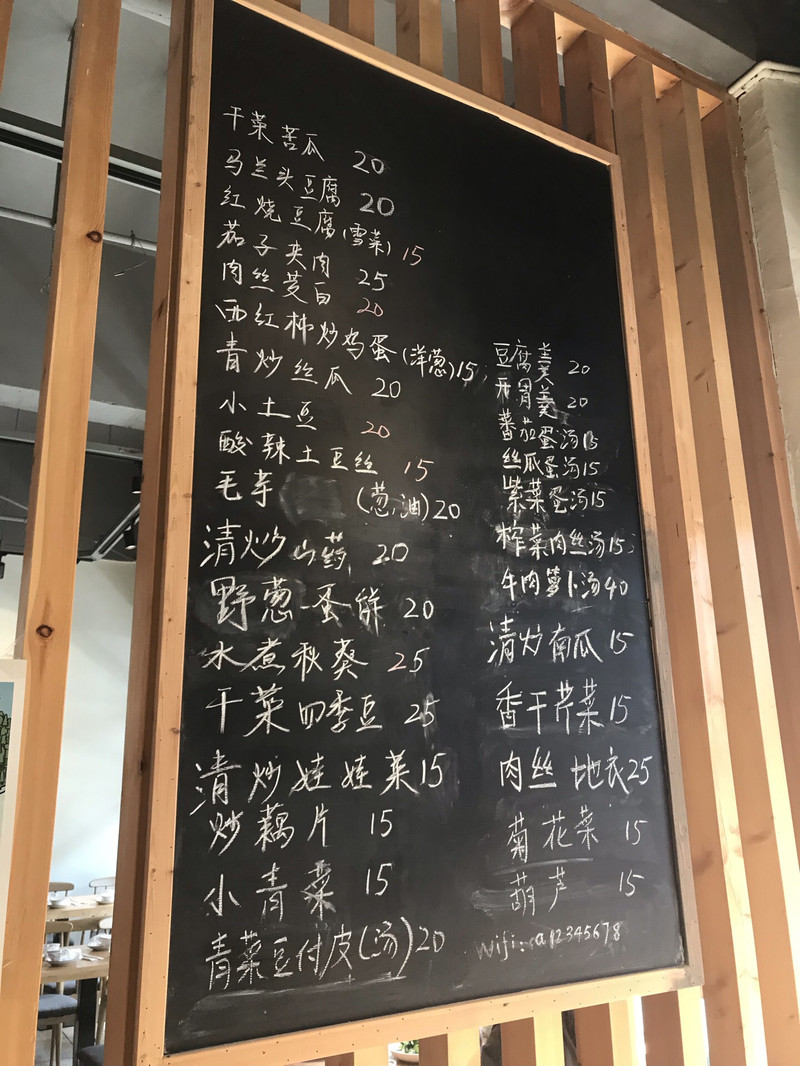 干菜苦瓜 20
马兰头豆腐 20
红烧豆腐(雪菜) 15
茄子夹肉 25
肉丝茭白 20
西红柿炒鸡蛋(洋葱)15
青炒丝瓜 20
小土豆 20
酸辣土豆丝 15
毛芋 (葱,油)20
清炒山药 20
野葱蛋饼 20
水煮秋葵 25
干菜四季豆 25
清炒娃娃菜15
炒藕片 15
小青菜 15
青菜豆付皮(汤)20
豆腐羹 20
开胃羹 20
蕃茄蛋汤15
丝瓜蛋汤15
紫菜蛋汤15
榨菜肉丝汤15
牛肉萝卜汤40
清炒南瓜 15
香干芹菜15
肉丝地衣25
菊花菜 15
葫芦 15
wifi: a12345678